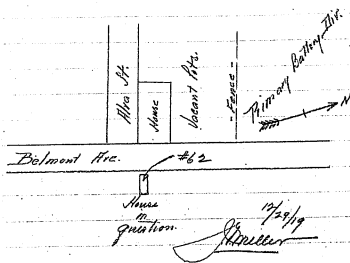 Alva St.
House
Vacant Lots.
- Fence -
Primary Battery Div.
N
Belmont Ave.
#62
House
in
question.
12/29/19
Miller